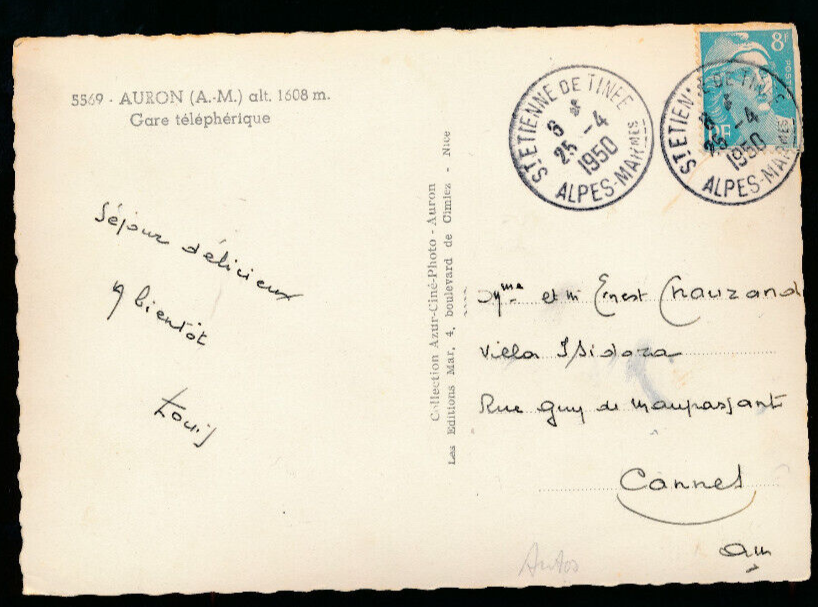 5569 - AURON (A.-M.) alt. 1608 m.
Gare téléphérique
Séjour délicieux
A bientôt
Louis
Collection Azur-Ciné-Photo - Auron
Les Editions Mar, 4, boulevard de Cimiez - Nice
ST ETIENNE DE TINEE
8
25 -4
1950
ALPES-MARMES
8F
POSTES
RF
ST ETIENNE DE TINEE
8
25 -4
1950
ALPES-MARMES
Mme et M Ernest Chauzand
Villa Isidora
Rue Guy de Maupassant
Cannes
am
Autos